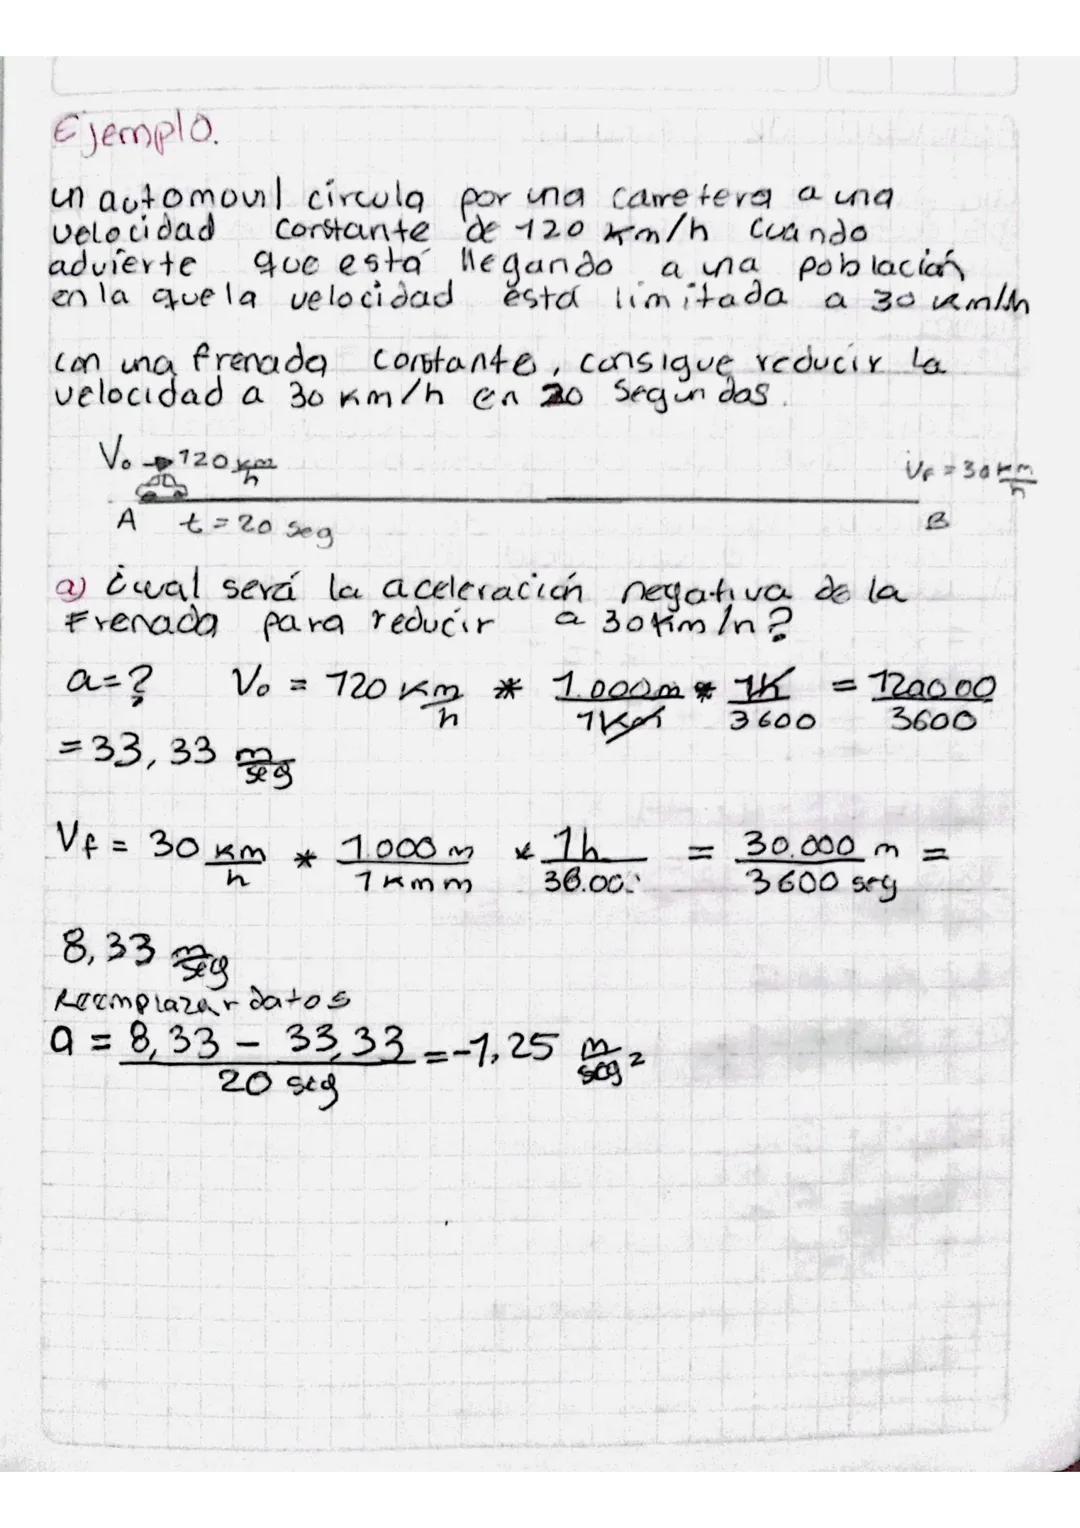 Ejemplo.
un automovil circula por una carretera a una
velocidad constante de 120 km/h cuando
advierte que está llegando a una población
en la que la velocidad está limitada a 30 km/h
con una frenada constante, consigue reducir la
velocidad a 30 km/h en 20 segundos.
V₀ → 120 km/h
Vf = 30 km/h
A t = 20 seg B
a) ¿cual será la aceleración negativa de la
Frenada para reducir a 30 km/h?
a=? V₀ = 120 km/h * 1.000m/1Km * 1h/3600 = 120000/3600
= 33,33 m/seg
Vf = 30 km/h * 1.000 m/1 Kmm * 1h/36.00 = 30.000 m/3600 seg =
8,33 m/seg
Reemplazar datos
a = 8,33 - 33,33/20 seg = -1,25 m/seg²